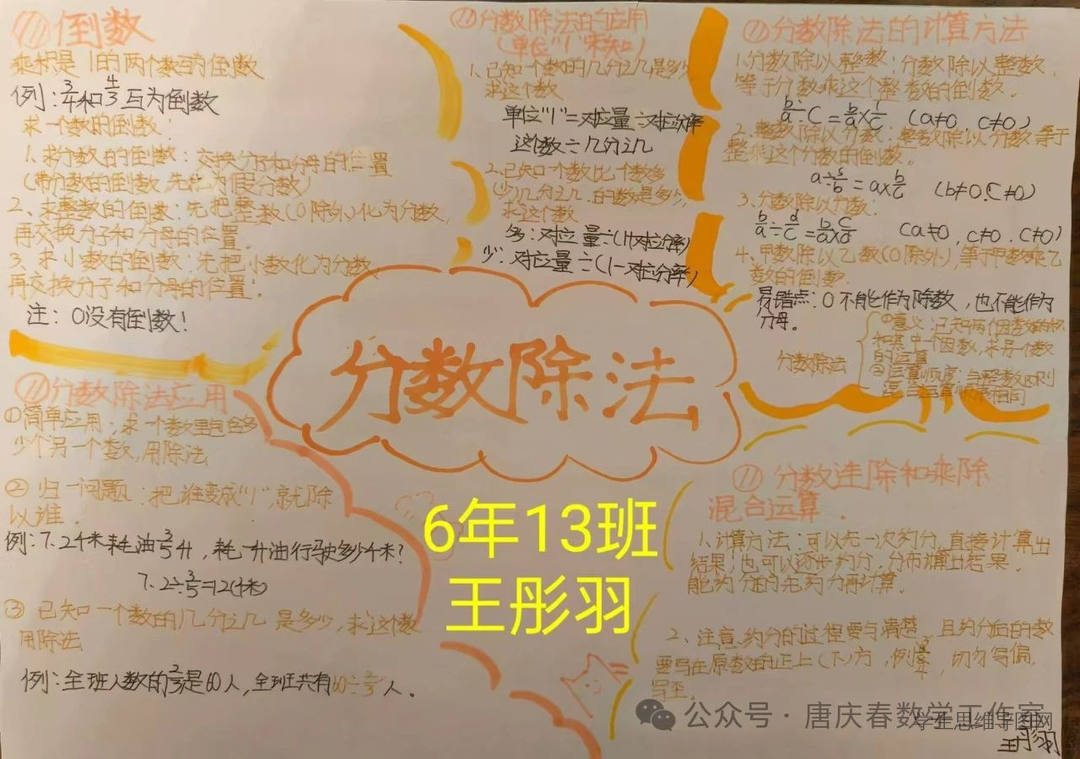 倒数
乘积是1的两个数互为倒数
例:3/4和4/3互为倒数
求一个数的倒数:
1、求分数的倒数:交换分子和分母的位置
(带分数的倒数,先化为假分数)
2、求整数的倒数:先把整数(0除外)化为分数,
再交换分子和分母的位置。
3、求小数的倒数:先把小数化为分数
再交换分子和分母的位置.
注:0没有倒数!
分数除法的应用
(单位"1"未知)
1、已知一个数的几分之几是多少
求这个数
单位"1"=对应量÷对应分率
这个数÷几分之几
2、已知一个数比个数多
(少)几分之几的数是多少,
求这个数
多:对应量÷(1+对应分率)
少:对应量÷(1-对应分率)
分数除法的计算方法
1、分数除以整数:分数除以整数,
等于分数乘这个整数的倒数.
b/a÷c=b/a×1/c (a≠0 c≠0)
2、整数除以分数:整数除以分数等于
整乘这个分数的倒数。
a÷c/b=a×b/c (b≠0.c≠0)
3、分数除以分数:
b/a÷d/c=b/a×c/d (a≠0,c≠0.c≠0)
4、甲数除以乙数(0除外),等于甲数乘乙
数的倒数
易错点:0不能作为除数,也不能作为
分母。
分数除法
①意义:已知两个因数的积
和其中一个因数,求另一个数
的运算
②运算顺序:与整数四则
混合运算顺序相同
分数除法
分数除法应用
①简单应用:求一个数里包含多
少个另一个数,用除法
②归一问题:把谁变成"1",就除
以谁.
例:7.2千米耗油3/5升,耗一升油行驶多少千米?
7.2÷3/5=12(千米)
③已知一个数的几分之几是多少,求这个数
用除法
例:全班人数的2/3是60人,全班共有60÷2/3人.
6年13班
王彤羽
分数连除和乘除
混合运算.
1、计算方法:可以先一次约分,直接计算出
结果;也可以逐步约分,分布算出结果.
能约分的先约分再计算.
2、注意:约分的过程要写清楚,且约分后的数
要写在原数的正上(下)方,例,切勿写偏,
写歪.
公众号·唐庆春数学工作室
学生思维导图网
王彤羽